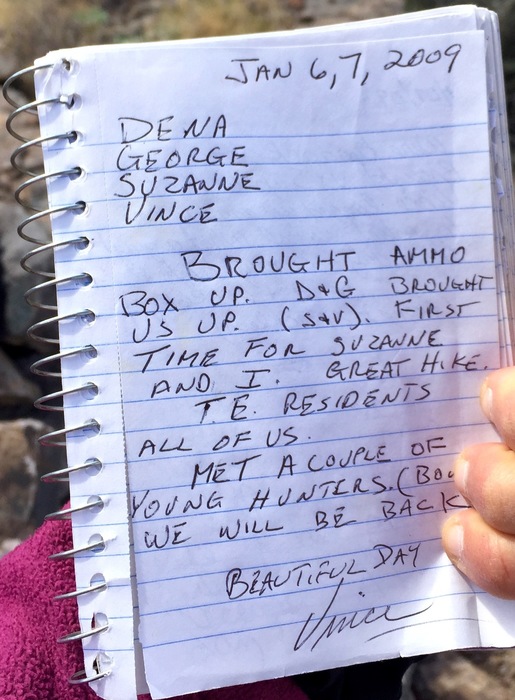 JAN 6,7, 2009
DENA
GEORGE
SUZANNE
VINCE
BROUGHT AMMO
BOX UP. D+G BROUGHT
US UP. (S+V). FIRST
TIME FOR SUZANNE
AND I. GREAT HIKE.
T.E. RESIDENTS
ALL OF US.
MET A COUPLE OF
YOUNG HUNTERS.
WE WILL BE BACK
BEAUTIFUL DAY
Vince